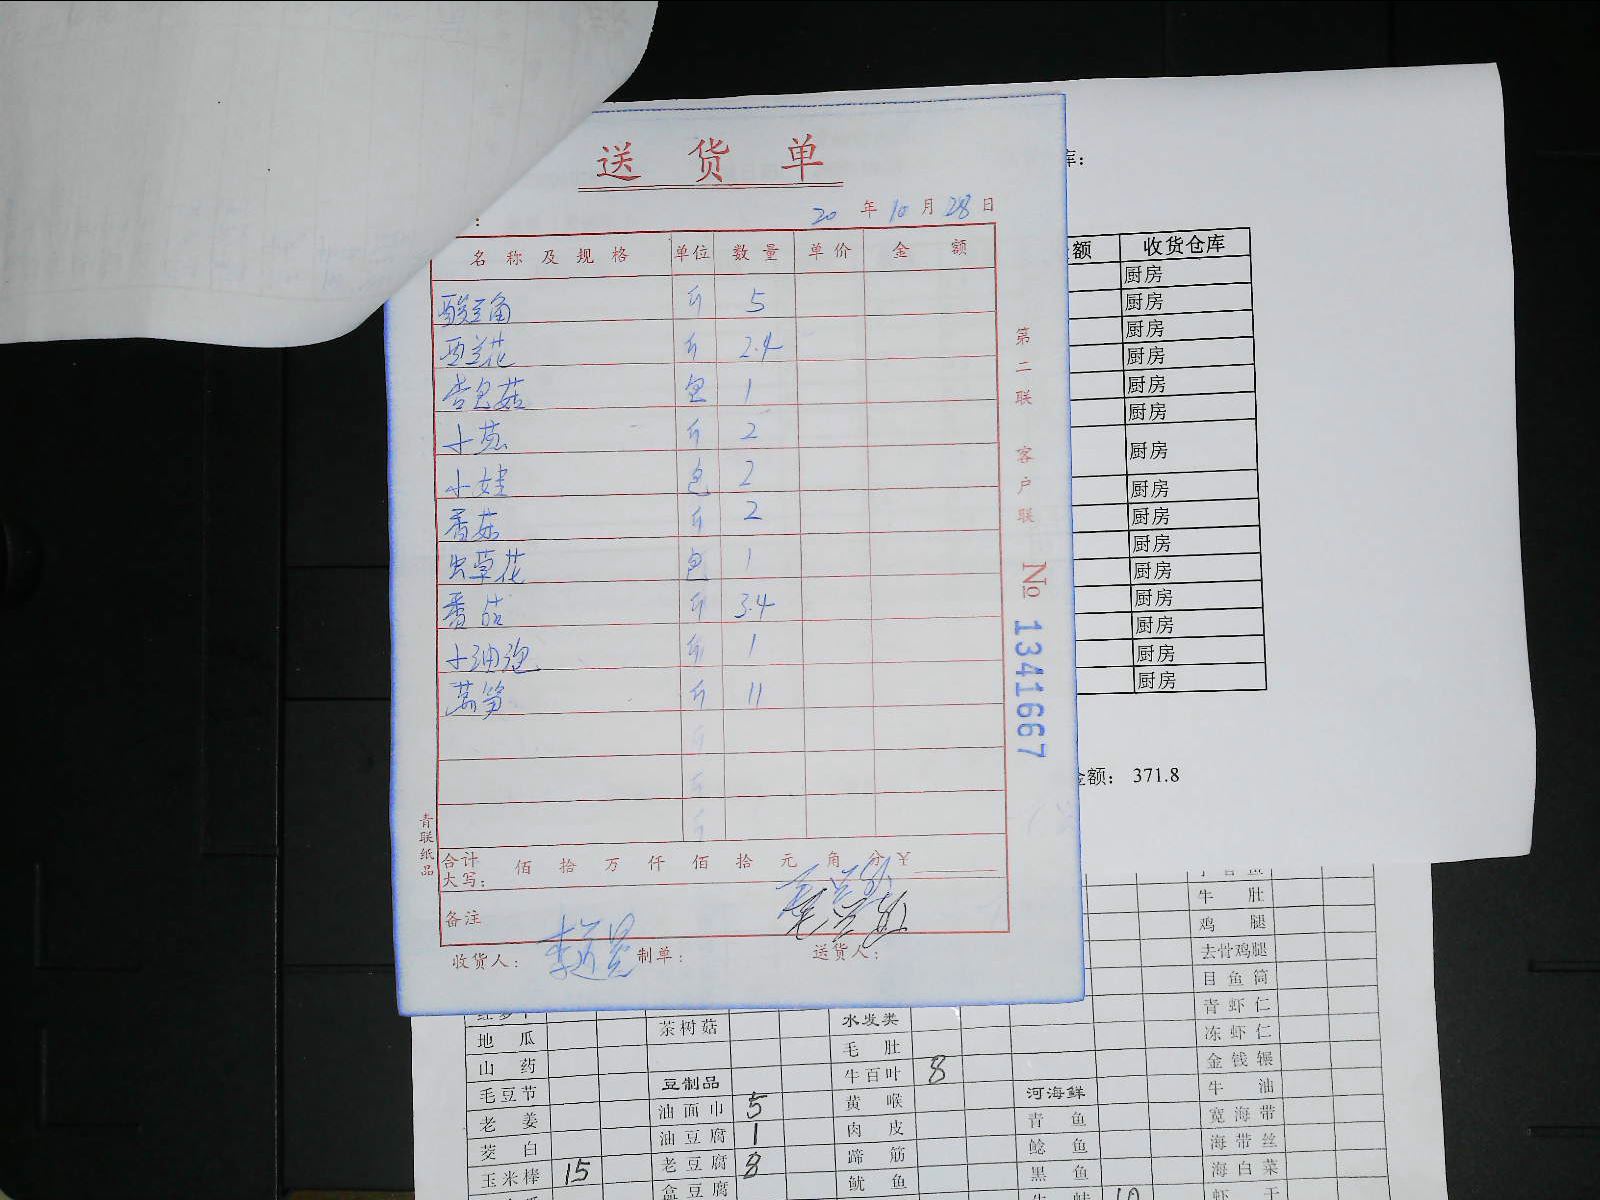 送货单
:
20 年 10 月 28 日
名称及规格 单位 数量 单价 金额
酸豆角 斤 5
西兰花 斤 2.4
杏鲍菇 包 1
小葱 斤 2
小娃 包 2
香菇 斤 2
虫草花 包 1
番茄 斤 3.4
小油泡 斤 1
莴笋 斤 11
斤
斤
斤
合计大写: 佰 拾 万 仟 佰 拾 元 角 分 ¥
备注
收货人: 制单: 送货人:
青联纸品
第二联 客户联
No 1341667
库:
额 收货仓库
厨房
厨房
厨房
厨房
厨房
厨房
厨房
厨房
厨房
厨房
厨房
厨房
厨房
厨房
厨房
金额: 371.8
牛肚
鸡腿
去骨鸡腿
目鱼筒
茶树菇 水发类 青虾仁
地瓜 毛肚 冻虾仁
山药 豆制品 牛百叶 8 金钱辗
毛豆节 油面巾 5 黄喉 河海鲜 牛油
老姜 油豆腐 1 肉皮 青鱼 宽海带
茭白 老豆腐 8 蹄筋 鲶鱼 海带丝
玉米棒 15 盒豆腐 鱿鱼 黑鱼 海白菜
10